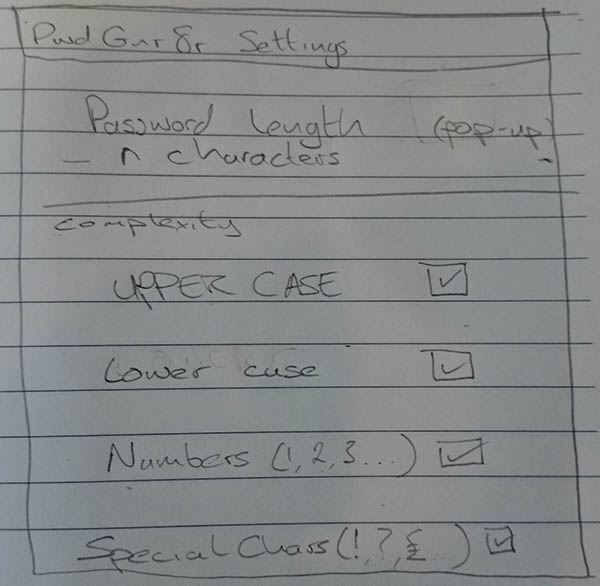 Pwd Gnr8r Settings
Password Length (pop-up)
- n characters
complexity
UPPER CASE
Lower case
Numbers (1, 2, 3...)
Special Chars (!, ?, £...)